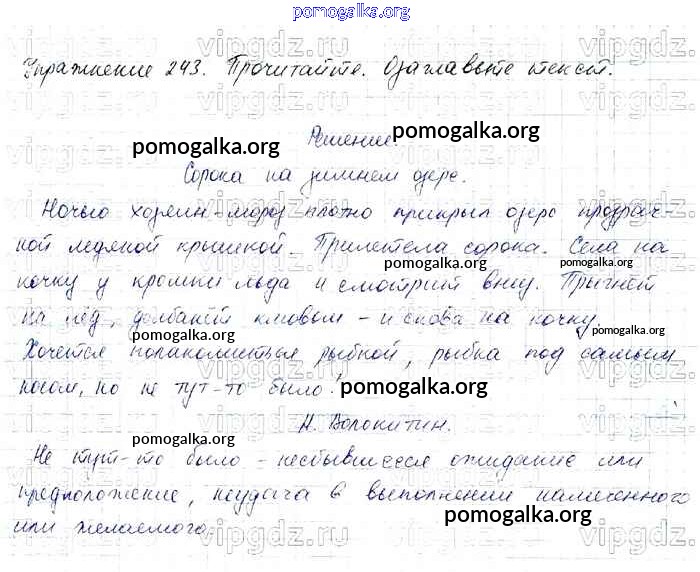 pomogalka.org
Упражнение 243. Прочитайте. Озаглавьте текст.
pomogalka.org pomogalka.org
Решение.
Сорока на зимнем озере.
Ночью хозяин-мороз плотно прикрыл озеро прозрач-
pomogalka.org
ной ледяной крышкой. Прилетела сорока. Села на
pomogalka.org pomogalka.org
кочку у кромки льда и смотрит вниз. Прыгнет
на лёд, долбанёт клювом - и снова на кочку.
pomogalka.org
Хочется полакомиться рыбкой, рыбка под самым
носом, но не тут-то было!
pomogalka.org
Н. Волокитин.
pomogalka.org
Не тут-то было - несбывшееся ожидание или
предположение, неудача в выполнении намеченного
или желаемого.
pomogalka.org